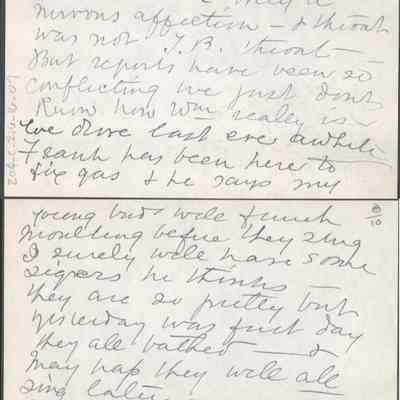 nervous affection — & throat
was not T.B. throat —
But reports have been so
conflicting we just dont
Know how Wm really is —
We drove last eve awhile
Frank has been here to
fix gas & he says my
young birds will finish
moulting before they sing
I surely will have some
singers he thinks —
they are so pretty but
yesterday was first day
they all bathed — &
may hap they will all
sing later
8/10